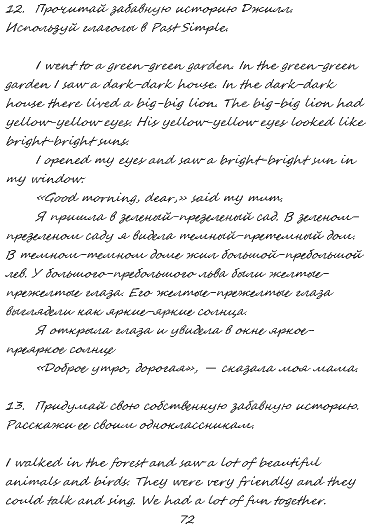 12. Прочитай забавную историю Джилл.
Используй глаголы в Past Simple.
I went to a green-green garden. In the green-green
garden I saw a dark-dark house. In the dark-dark
house there lived a big-big lion. The big-big lion had
yellow-yellow eyes. His yellow-yellow eyes looked like
bright-bright suns.
I opened my eyes and saw a bright-bright sun in
my window.
«Good morning, dear,» said my mum.
Я пришла в зеленый-презеленый сад. В зеленом-
презеленом саду я видела темный-претемный дом.
В темном-темном доме жил большой-пребольшой
лев. У большого-пребольшого льва были желтые-
прежелтые глаза. Его желтые-прежелтые глаза
выглядели как яркие-яркие солнца.
Я открыла глаза и увидела в окне яркое-
преяркое солнце
«Доброе утро, дорогая», – сказала моя мама.
13. Придумай свою собственную забавную историю.
Расскажи ее своим одноклассникам.
I walked in the forest and saw a lot of beautiful
animals and birds. They were very friendly and they
could talk and sing. We had a lot of fun together.
72